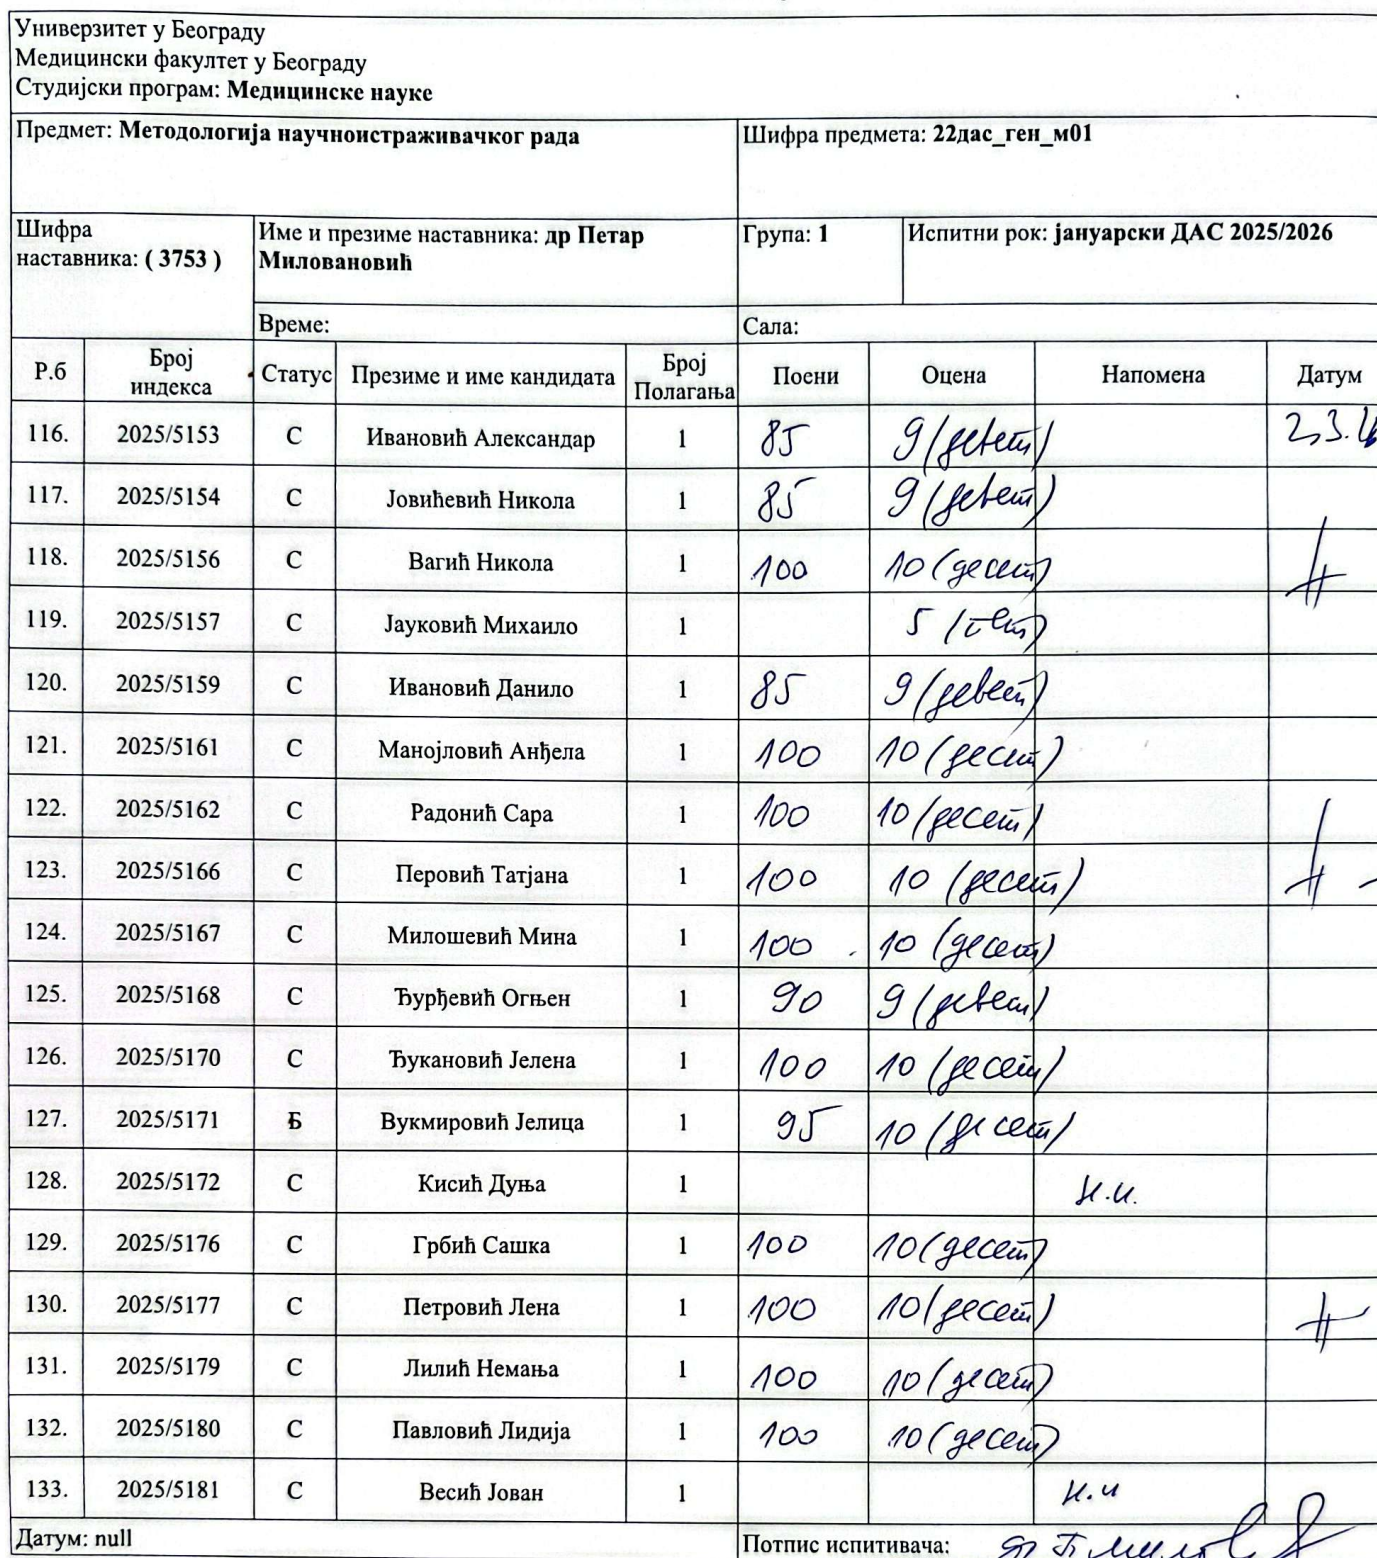 Универзитет у Београду
Медицински факултет у Београду
Студијски програм: Медицинске науке
Предмет: Методологија научноистраживачког рада Шифра предмета: 22дас_ген_м01
Шифра наставника: ( 3753 ) Име и презиме наставника: др Петар Миловановић Група: 1 Испитни рок: јануарски ДАС 2025/2026
Време: Сала:
Р.б Број индекса Статус Презиме и име кандидата Број Полагања Поени Оцена Напомена Датум
116. 2025/5153 С Ивановић Александар 1 85 9 (девет)
117. 2025/5154 С Јовићевић Никола 1 85 9 (девет)
118. 2025/5156 С Вагић Никола 1 100 10 (десет)
119. 2025/5157 С Јауковић Михаило 1 5 (пет)
120. 2025/5159 С Ивановић Данило 1 85 9 (девет)
121. 2025/5161 С Манојловић Анђела 1 100 10 (десет)
122. 2025/5162 С Радонић Сара 1 100 10 (десет)
123. 2025/5166 С Перовић Татјана 1 100 10 (десет)
124. 2025/5167 С Милошевић Мина 1 100 10 (десет)
125. 2025/5168 С Ђурђевић Огњен 1 90 9 (девет)
126. 2025/5170 С Ђукановић Јелена 1 100 10 (десет)
127. 2025/5171 Б Вукмировић Јелица 1 95 10 (десет)
128. 2025/5172 С Кисић Дуња 1 н.и.
129. 2025/5176 С Грбић Сашка 1 100 10 (десет)
130. 2025/5177 С Петровић Лена 1 100 10 (десет)
131. 2025/5179 С Лилић Немања 1 100 10 (десет)
132. 2025/5180 С Павловић Лидија 1 100 10 (десет)
133. 2025/5181 С Весић Јован 1 н.и
Датум: null Потпис испитивача: